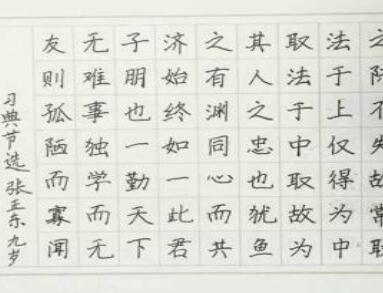 之
不失故常
法于上仅得为中
取法于中取故为
其人之忠也犹鱼
之有渊同心而共
济始终如一此君
子朋也一勤天下
无难事独学而无
友则孤陋而寡闻
习典节选 张正东 九岁